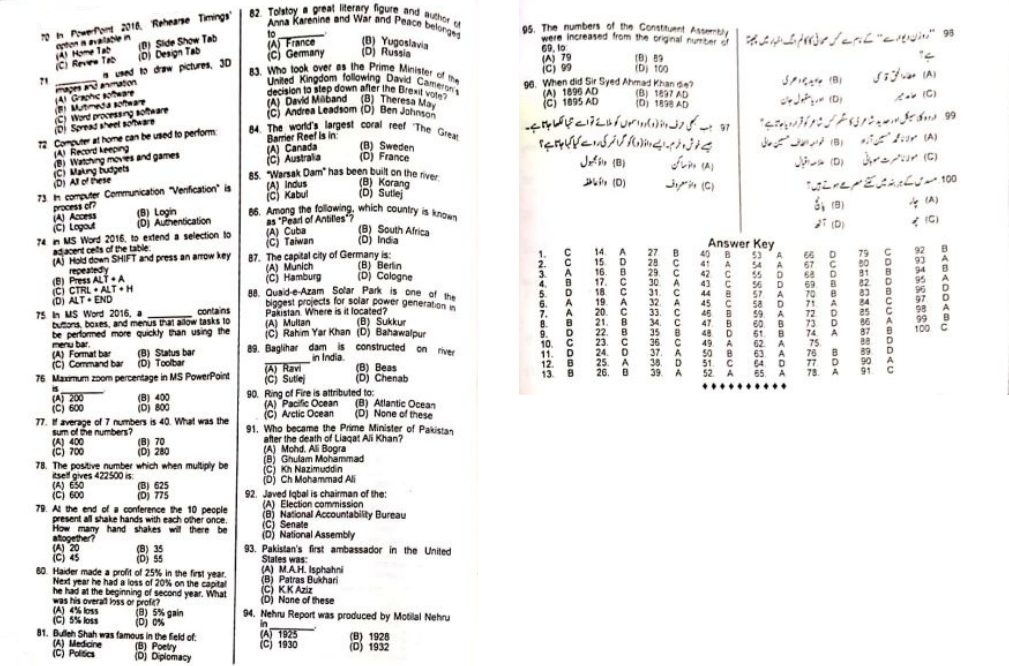 70 In PowerPoint 2016, 'Rehearse Timings'
option is available in
(A) Home Tab (B) Slide Show Tab
(C) Review Tab (D) Design Tab
71 ________ is used to draw pictures, 3D
images and animation
(A) Graphic software
(B) Multimedia software
(C) Word processing software
(D) Spread sheet software
72 Computer at home can be used to perform:
(A) Record keeping
(B) Watching movies and games
(C) Making budgets
(D) All of these
73. In computer Communication "Verification" is
process of?
(A) Access (B) Login
(C) Logout (D) Authentication
74 in MS Word 2016, to extend a selection to
adjacent cells of the table:
(A) Hold down SHIFT and press an arrow key
repeatedly
(B) Press ALT + A
(C) CTRL + ALT + H
(D) ALT + END
75 In MS Word 2016, a ________ contains
buttons, boxes, and menus that allow tasks to
be performed more quickly than using the
menu bar.
(A) Format bar (B) Status bar
(C) Command bar (D) Toolbar
76 Maximum zoom percentage in MS PowerPoint
is ________
(A) 200 (B) 400
(C) 600 (D) 800
77. If average of 7 numbers is 40. What was the
sum of the numbers?
(A) 400 (B) 70
(C) 700 (D) 280
78. The positive number which when multiply be
itself gives 422500 is:
(A) 650 (B) 625
(C) 600 (D) 775
79. At the end of a conference the 10 people
present all shake hands with each other once.
How many hand shakes will there be
altogether?
(A) 20 (B) 35
(C) 45 (D) 55
80. Haider made a profit of 25% in the first year.
Next year he had a loss of 20% on the capital
he had at the beginning of second year. What
was his overall loss or profit?
(A) 4% loss (B) 5% gain
(C) 5% loss (D) 0%
81. Bulleh Shah was famous in the field of:
(A) Medicine (B) Poetry
(C) Politics (D) Diplomacy
82. Tolstoy a great literary figure and author of
Anna Karenine and War and Peace belonged
to ________
(A) France (B) Yugoslavia
(C) Germany (D) Russia
83. Who took over as the Prime Minister of the
United Kingdom following David Cameron's
decision to step down after the Brexit vote?
(A) David Miliband (B) Theresa May
(C) Andrea Leadsom (D) Ben Johnson
84. The world's largest coral reef 'The Great
Barrier Reef is in:
(A) Canada (B) Sweden
(C) Australia (D) France
85. "Warsak Dam" has been built on the river:
(A) Indus (B) Korang
(C) Kabul (D) Sutlej
86. Among the following, which country is known
as "Pearl of Antilles"?
(A) Cuba (B) South Africa
(C) Taiwan (D) India
87. The capital city of Germany is:
(A) Munich (B) Berlin
(C) Hamburg (D) Cologne
88. Quaid-e-Azam Solar Park is one of the
biggest projects for solar power generation in
Pakistan. Where is it located?
(A) Multan (B) Sukkur
(C) Rahim Yar Khan (D) Bahawalpur
89. Baglihar dam is constructed on river
________ in India.
(A) Ravi (B) Beas
(C) Sutlej (D) Chenab
90. Ring of Fire is attributed to:
(A) Pacific Ocean (B) Atlantic Ocean
(C) Arctic Ocean (D) None of these
91. Who became the Prime Minister of Pakistan
after the death of Liaqat Ali Khan?
(A) Mohd. Ali Bogra
(B) Ghulam Mohammad
(C) Kh Nazimuddin
(D) Ch Mohammad Ali
92. Javed Iqbal is chairman of the:
(A) Election commission
(B) National Accountability Bureau
(C) Senate
(D) National Assembly
93. Pakistan's first ambassador in the United
States was:
(A) M.A.H. Isphahni
(B) Patras Bukhari
(C) K.K Aziz
(D) None of these
94. Nehru Report was produced by Motilal Nehru
in ________
(A) 1925 (B) 1928
(C) 1930 (D) 1932
95. The numbers of the Constituent Assembly
were increased from the original number of
69, to:
(A) 79 (B) 89
(C) 99 (D) 100
96. When did Sir Syed Ahmad Khan die?
(A) 1896 AD (B) 1897 AD
(C) 1895 AD (D) 1898 AD
97 جب کبھی حرف واؤ (و) دو اسموں کو ملائے تو اسے تنہا لکھا جاتا ہے۔
جیسے خوش و خرم۔ ایسے واؤ (و) کو گرائمر کی رو سے کیا کہا جاتا ہے؟
(A) واؤ ساکن (B) واؤ مجہول
(C) واؤ معروف (D) واؤ عاطفہ
98 "روزن دیوار سے" کے نام سے کس صحافی کا کالم جنگ اخبار میں چھپتا
ہے؟
(A) عطاء الحق قاسمی (B) جاوید چودھری
(C) حامد میر (D) اوریا مقبول جان
99 اردو کلاسیکل اور جدید شاعری کا سنگم کس شاعر کو قرار دیا جاتا ہے؟
(A) مولانا محمد حسین آزاد (B) خواجہ الطاف حسین حالی
(C) مولانا حسرت موہانی (D) علامہ اقبال
100 مسدس کے ہر بند میں کتنے مصرعے ہوتے ہیں؟
(A) چار (B) پانچ
(C) چھ (D) آٹھ
Answer Key
1. C 14. A 27 B 40 B 53 A 66 D 79 C 92 B
2. C 15. D 28 C 41 A 54 A 67 C 80 D 93 A
3. A 16. B 29. C 42 C 55 D 68 D 81 B 94 B
4. B 17. C 30. A 43 C 56 D 69. B 82. D 95 A
5. D 18. C 31. C 44 B 57. A 70. B 83. B 96 D
6. A 19. A 32. A 45 C 58. D 71. A 84. C 97 D
7. A 20. C 33. C 46 B 59. A 72. D 85 C 98 A
8. B 21. B 34. C 47. B 60. B 73. D 86 A 99 B
9. D 22. B 35 B 48 D 61. B 74. A 87 B 100 C
10. C 23. C 36 C 49. A 62. A 75. 88 D
11. D 24. D 37. A 50 B 63. A 76 B 89. D
12. B 25. A 38. D 51. C 64. D 77. D 90. A
13. B 26. B 39. A 52. A 65. A 78. A 91. C